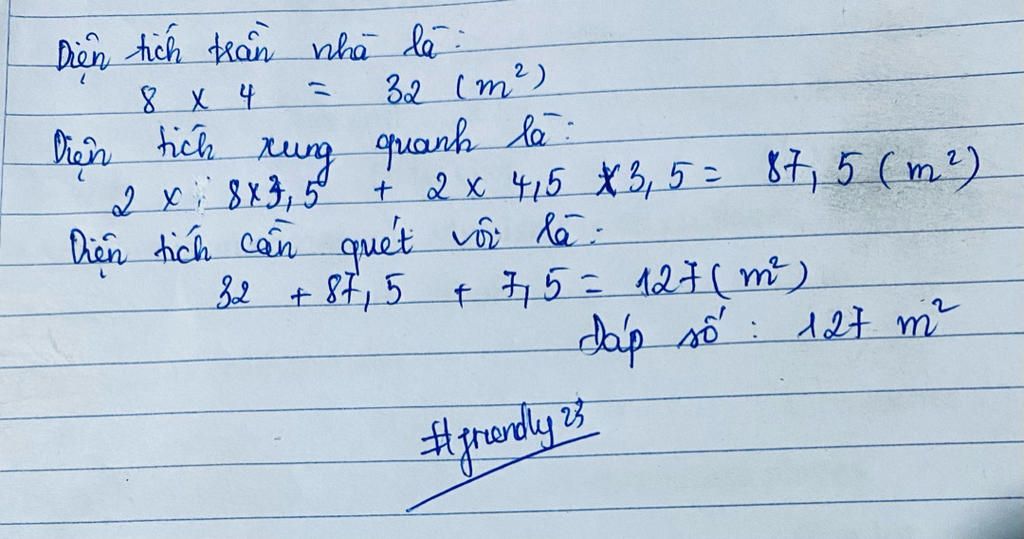 Diện tích trần nhà là:
8 x 4 = 32 (m²)
Diện tích xung quanh là:
2 x 8x3,5 + 2 x 4,5 x3,5 = 87,5 (m²)
Diện tích cần quét vôi là:
32 + 87,5 + 7,5 = 127 (m²)
Đáp số: 127 m²
#friendly23